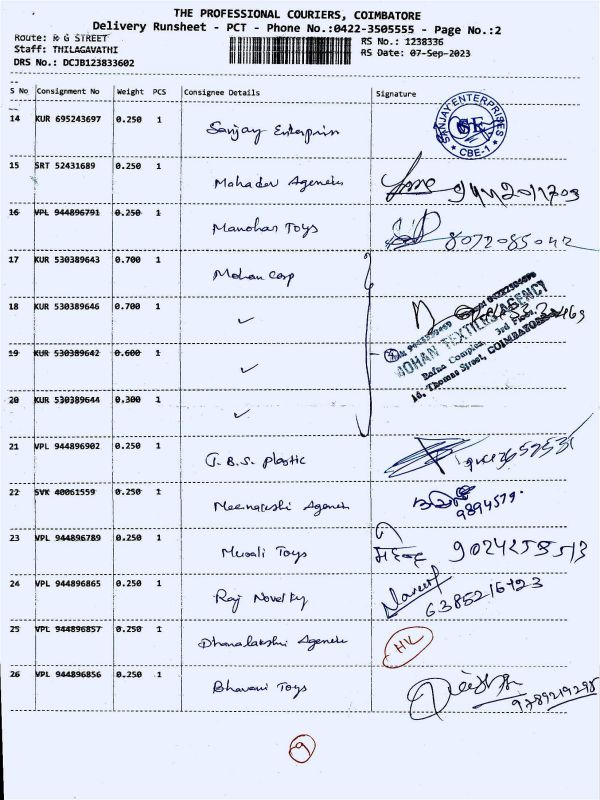 THE PROFESSIONAL COURIERS, COIMBATORE
Delivery Runsheet - PCT - Phone No.:0422-3505555 - Page No.:2
Route: R G STREET
Staff: THILAGAVATHI
DRS No.: DCJB123833602
RS No.: 1238336
RS Date: 07-Sep-2023
S No Consignment No Weight PCS Consignee Details Signature
14 KUR 695243697 0.250 1 Sanjay Enterprises
SANJAY ENTERPRISES
SE
* CBE-1 *
15 SRT 52431689 0.250 1 Mahadev Agencies
16 VPL 944896791 0.250 1 Manohar Toys 8072085042
17 KUR 530389643 0.700 1 Mohan Corp
18 KUR 530389646 0.700 1 ✓
MOHAN TEXTILES AGENCY
Bafna Complex, 3rd Floor,
16, Thomas Street, COIMBATORE
19 KUR 530389642 0.600 1 ✓ 4
20 KUR 530389644 0.300 1 ✓
21 VPL 944896902 0.250 1 J.B.S. plastic
22 SVK 40061559 0.250 1 Meenakshi Agencies
23 VPL 944896789 0.250 1 Murali Toys
24 VPL 944896865 0.250 1 Raj Novelty Naresh 6385216423
25 VPL 944896857 0.250 1 Dhanalakshmi Agencies
26 VPL 944896856 0.250 1 Bhavani Toys 9789219298
9